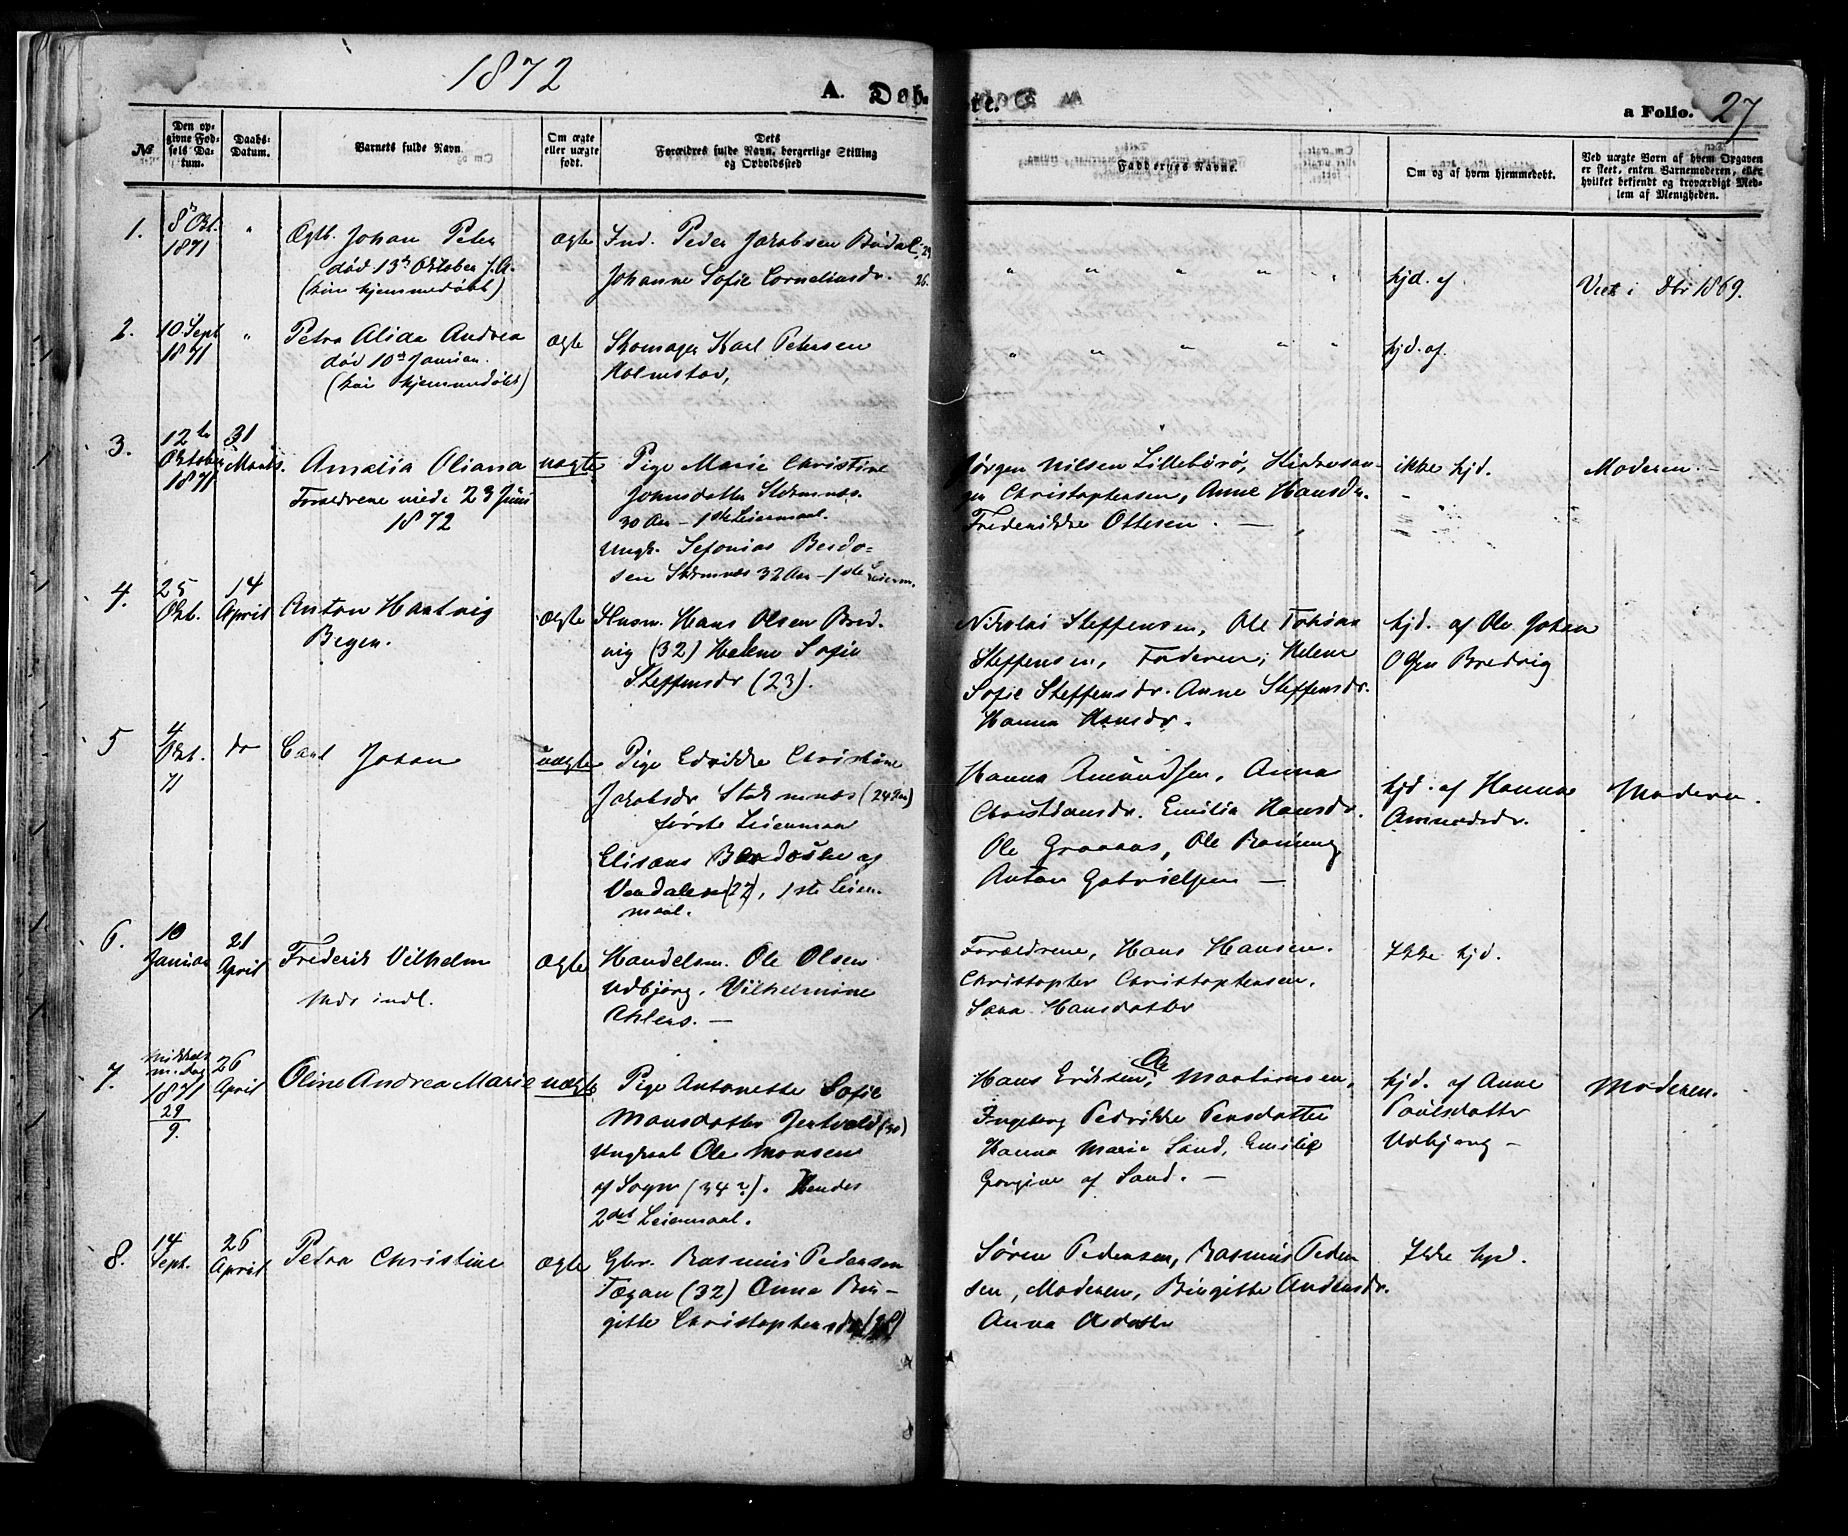 1872
A. Døb-
te.
a Folio. 27
№
Den op-
givne Fød-
sels Da-
tum.
Daabs-
Datum.
Barnets fulde Navn
Om ægte
eller uægte
født.
Dets
Forældres fulde Navn, borgerlige Stilling
og Opholdssted
Faddernes Navne.
Om og af hvem hjemmedøbt.
Ved uægte Børn af hvem Opgaven
er skeet, enten Barnemoderen, eller
hvilket bekjendt og troværdigt Med-
lem af Menigheden.
1.
8de Okt.
1871
"
Ægtb. Johan Peter
død 13de Oktober f. A.
(kun hjemmedøbt)
ægte
Ind. Peder Jakobsen
Johanne Sofie Corneliusdr. 26.
" " " " " "
hjd. af
Viet i Dbr 1869.
2.
10 Sept
1871
"
Petra Alida Andrea
død 10de Januar.
(kun hjemmedøbt)
ægte
Skomager Karl Petersen
Holmstad,
" " " " "
hjd. af
3.
12te
Oktober
1871
31
Marts.
Amalia Oliana
Forældrene viede 23 Juni
1872
uægte
Pige Marie Christine
Johnsdatter Stokmnæs.
30 Aar - 1ste Leiermaal.
Ungk. Sefonias Berdo-
sen Stokmnæs 32 Aar - 1ste Leierm.
Jørgen Nilsen Lillebørø,
Christophersen, Anne Hansdr.
Frederikke Ottesen. —
ikke hjd.
-
Moderen. -
4.
25
Okt.
14
April
Anton Hartvig
Begen.
Ægte
Husm. Hans Olsen Bred-
vig (32) Helene Sofie
Steffensdr (23).
Nikolai Steffensen, Ole Johan
Steffensen, Faderen; Helene
Sofie Steffensdr. Anne Steffensdr.
Hanna Hansdr.
hjd. af Ole Johan
Olsen Bredvig
5
4
Okt.
71
do
Carl Johan
uægte
Pige Edvikke Christine
Jakobsdr Stokmnæs (24 Aar)
første Leiermaal
Elisæus Berdosen af
Vendalen (27), 1ste Leier-
maal.
Hanna Amundsen, Anna
Christiansdr. Emilia Hansdr.
Ole Graaaas, Ole Rønning
Anton Gabrielsen —
hjd. af Hanna
Amundsdr.
Moderen.
6.
10
Januar
21
April
Frederik Vilhelm
indl.
Ægte
Handelsm. Ole Olsen
Udbjørg, Vilhelmine
Ahlers. —
Forældrene, Hans Hansen.
Christopher Christophersen.
Sara Hansdatter
Ikke hjd.
7.
Mikkels
m. dag
1871
29
9.
26
April
Oline Andrea Marie
uægte
Pige Antonette Sofie
Monsdatter Jertvold (30)
Ungkarl Ole Monsen
af Sogn (34?). Hendes
2det Leiermaal.
Hans Eriksen, Ole Mortensen,
Ingeborg Pedrikke Persdatter
Hanna Marie Sand, Emilie
Georgine af Sand. —
hjd. af Anne
Paulsdatter
Udbjørg —
Moderen.
8.
14
Sept.
26
April
Petra Christine
ægte
Gbr. Rasmus Pedersen
Tøgan (32) Anna Bir-
gitte Christophersdr
Søren Pedersen, Rasmus Peder
sen, Moderen, Birgitte Andersdr.
Anna Olsdatter
Ikke hjd.